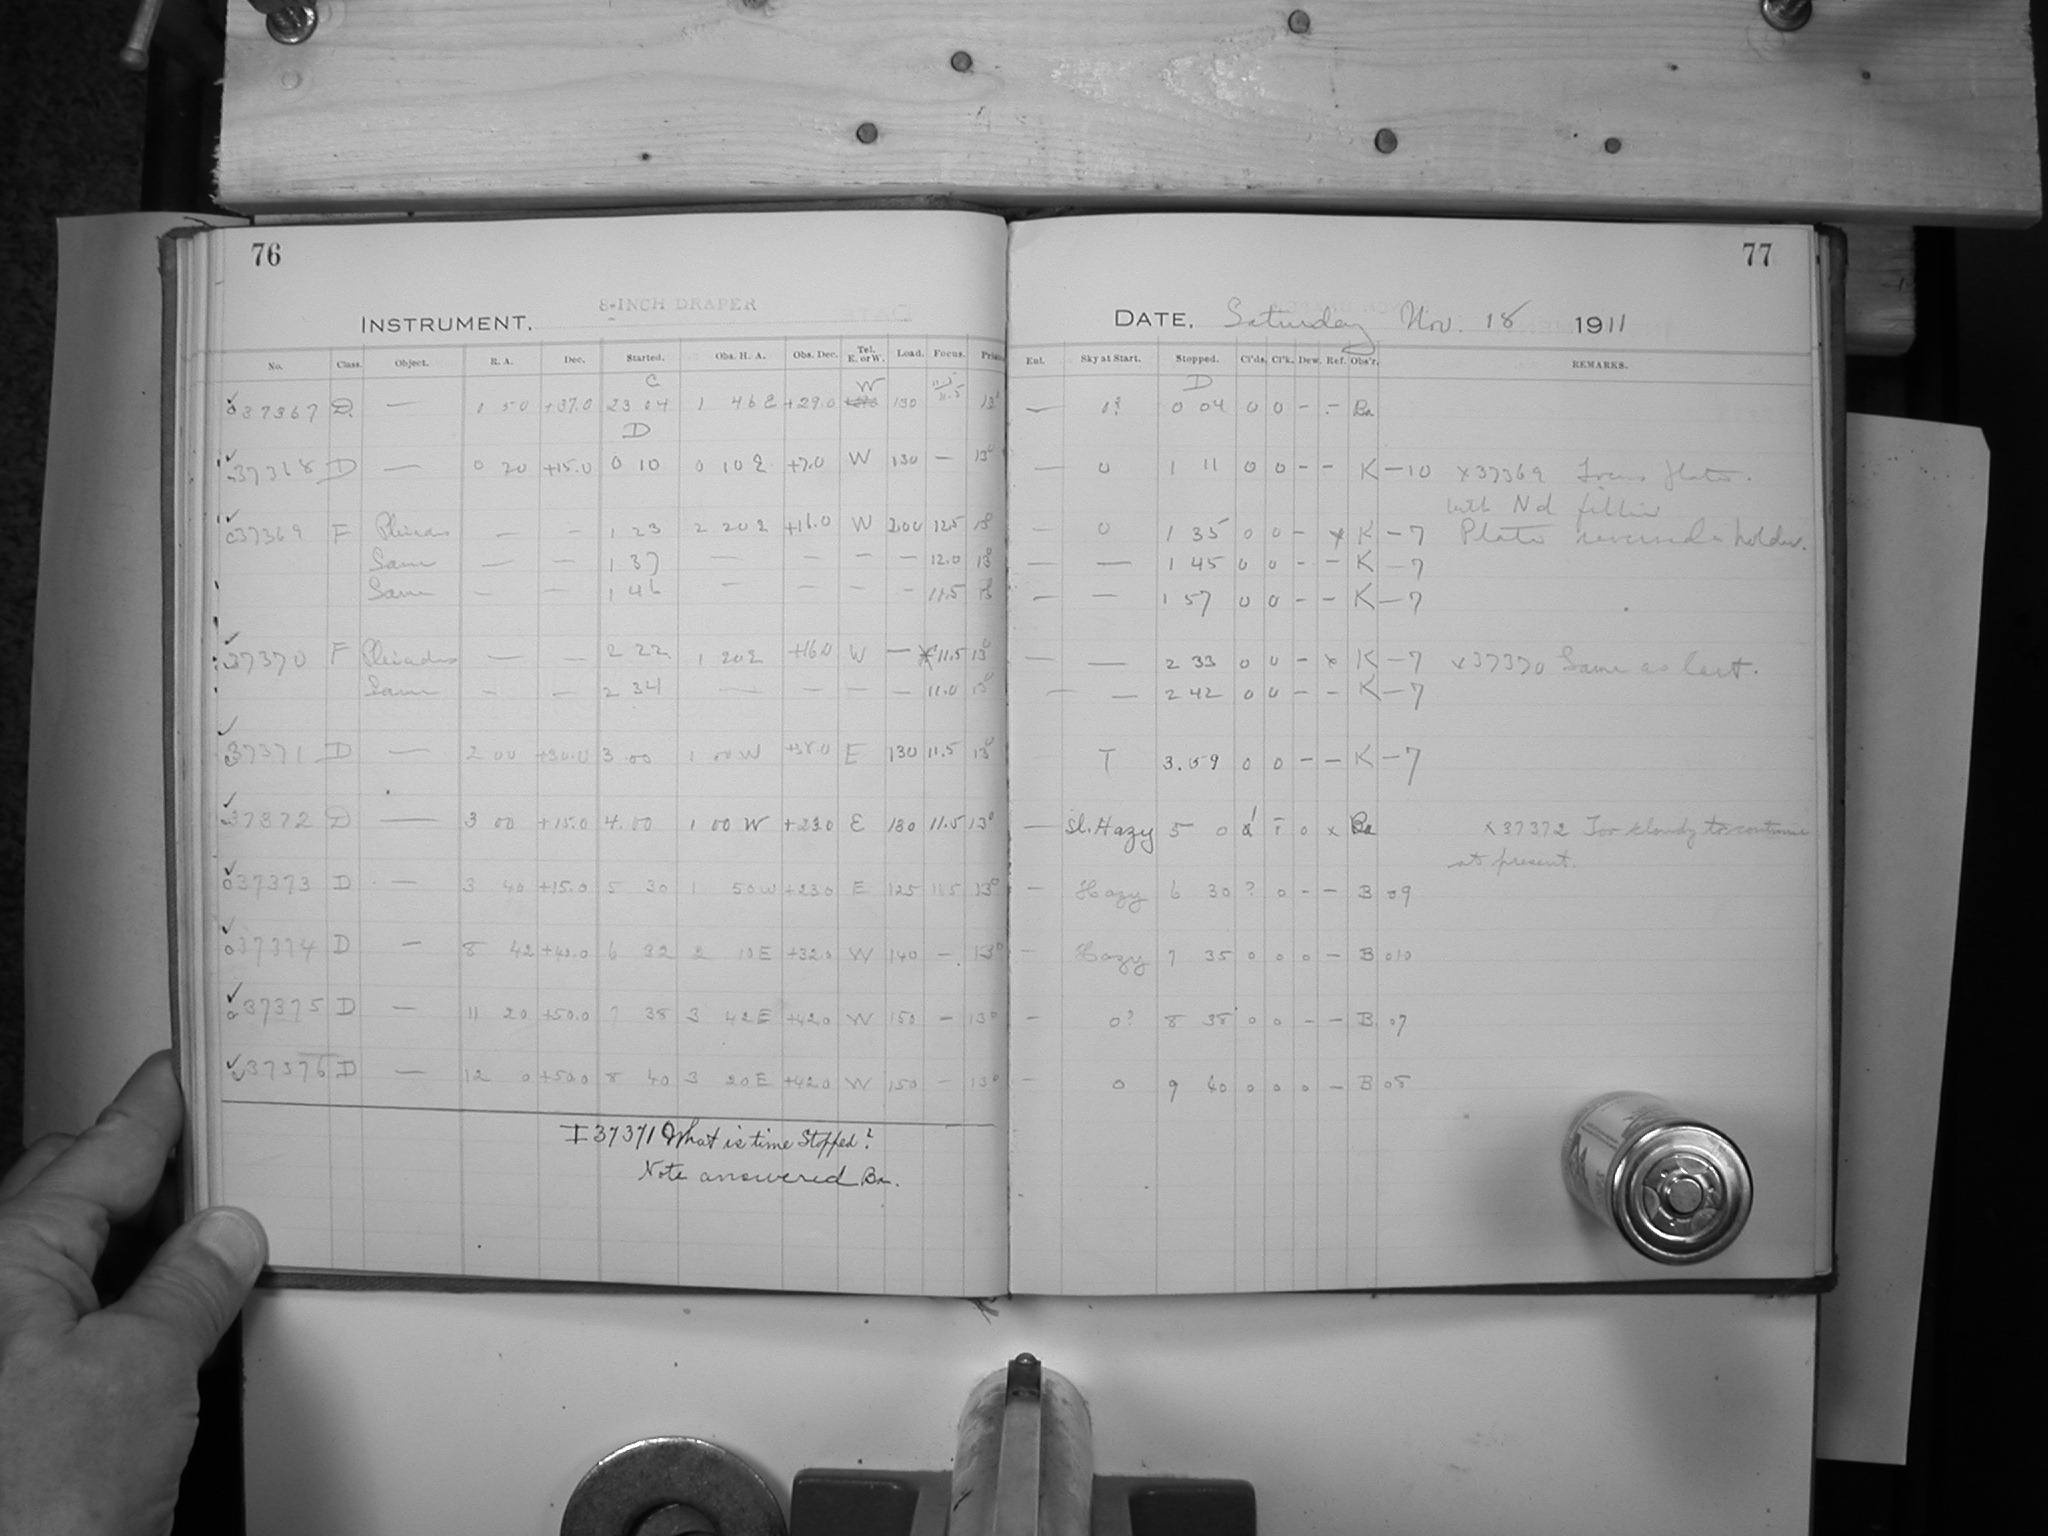 76
77
8-INCH DRAPER
INSTRUMENT.
DATE, Saturday Nov. 18 1911
No. Class. Object. R. A. Dec. Started. Obs. H. A. Obs. Dec. Tel. E. or W. Load. Focus. Ent. Sky at Start. Stopped. Cl'ds. Cl'k. Dew. Ref. Obs'r. REMARKS.
C W D
37367 D — 1 50 +37.0 23 04 1 46 E +29.0 130 11.5 13° — 0? 0 04 0 0 - - Ba
D
D — 0 20 +15.0 0 10 0 10 E +7.0 W 130 — 13° — 0 1 11 0 0 - - K -10 x37369 Focus plate.
with Nd
37369 F Pleiades — — 1 23 2 20 E +16.0 W 200 12.5 13° — 0 1 35 0 0 - x K -7 Plate reversed holder.
Same — — 1 37 — — — — 12.0 13° — — 1 45 0 0 - - K -7
Same — — 1 46 — — — — 11.5 13° — — 1 57 0 0 - - K -7
37370 F Pleiades — — 2 22 1 20 E +16.0 W — x 11.5 13° — — 2 33 0 0 - x K -7 x37370 Same as last.
Same — — 2 34 — — — — 11.0 13° — — 2 42 0 0 - - K -7
37371 D — 2 00 +30.0 3 00 1 00 W +38.0 E 130 11.5 13° T 3.59 0 0 - - K -7
37372 D — 3 00 +15.0 4.00 1 00 W +23.0 E 130 11.5 13° — Sl. Hazy 5 0 T 0 x Ba x37372 Too cloudy to continue
at present.
37373 D — 3 40 +15.0 5 30 1 50 W +23.0 E 125 11.5 13° — Hazy 6 30 ? 0 - - B 09
37374 D — 8 42 +40.0 6 32 2 10 E +32.0 W 140 — 13° — Hazy 7 35 0 0 0 - B 010
37375 D — 11 20 +50.0 7 38 3 42 E +42.0 W 150 — 13° — 0? 8 38 0 0 - - B 07
37376 D — 12 0 +50.0 8 40 3 20 E +42.0 W 150 — 13° — 0 9 40 0 0 0 - B 08
I 37371 What is time Stopped?
Note answered Ba.